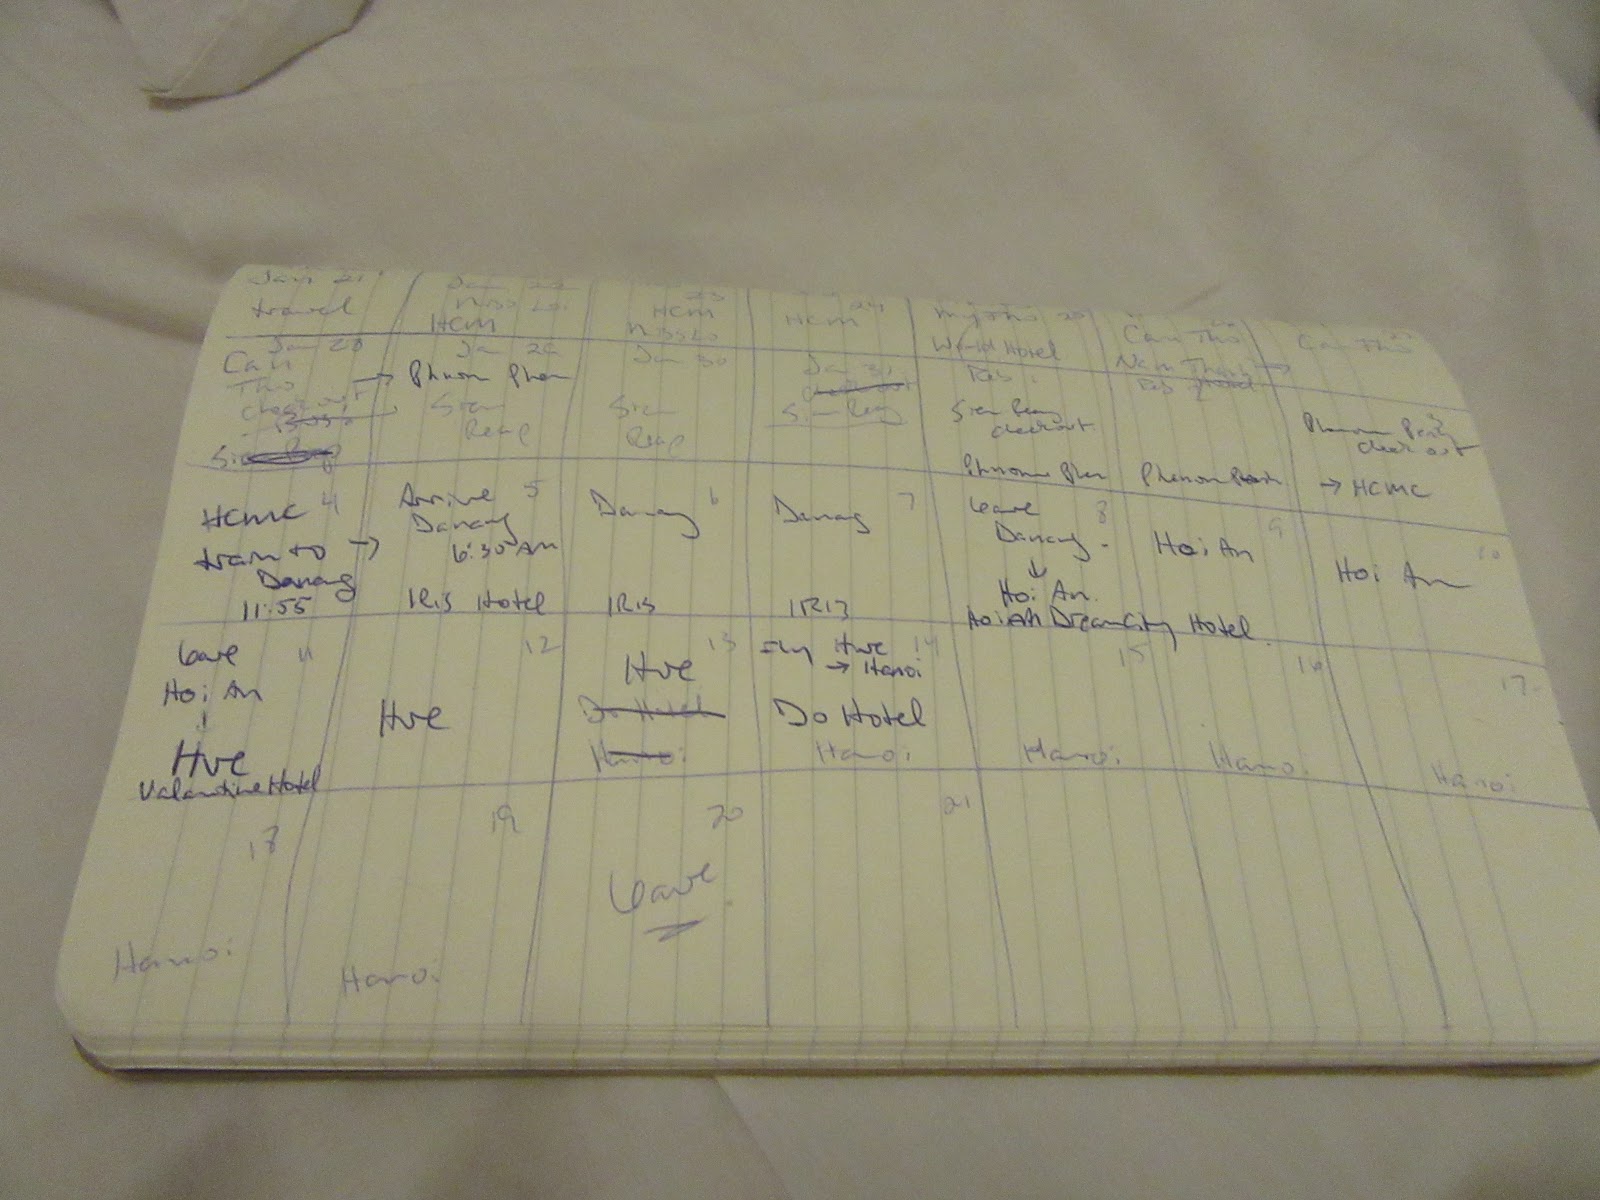 Jan 21
travel
HCM
23
HCM
HCM
My Tho
World Hotel
Res.
Can Tho
Can Tho
Jan 28
Can
Tho
check out
→
Phnom Phen
Siem
Reap
Jan 30
Siem
Reap
Jan 31
Siem Reap
Siem Reap
check out
Phnom Phen
check out
→ HCMC
HCMC 4
train to →
Danang
11:55
Arrive 5
Danang
6:30 AM
IRIS Hotel
Danang 6
IRIS
Danang 7
IRIS
leave 8
Danang
↓
Hoi An
Hoi An Dream City Hotel
9
Hoi An
10
Hoi An
leave 11
Hoi An
↓
Hue
Valantine Hotel
12
Hue
13
Hue
Do Hotel
Hanoi
Fly Hue 14
→ Hanoi
Do Hotel
Hanoi
15
Hanoi
16
Hanoi
17
Hanoi
18
Hanoi
19
Hanoi
20
leave
21